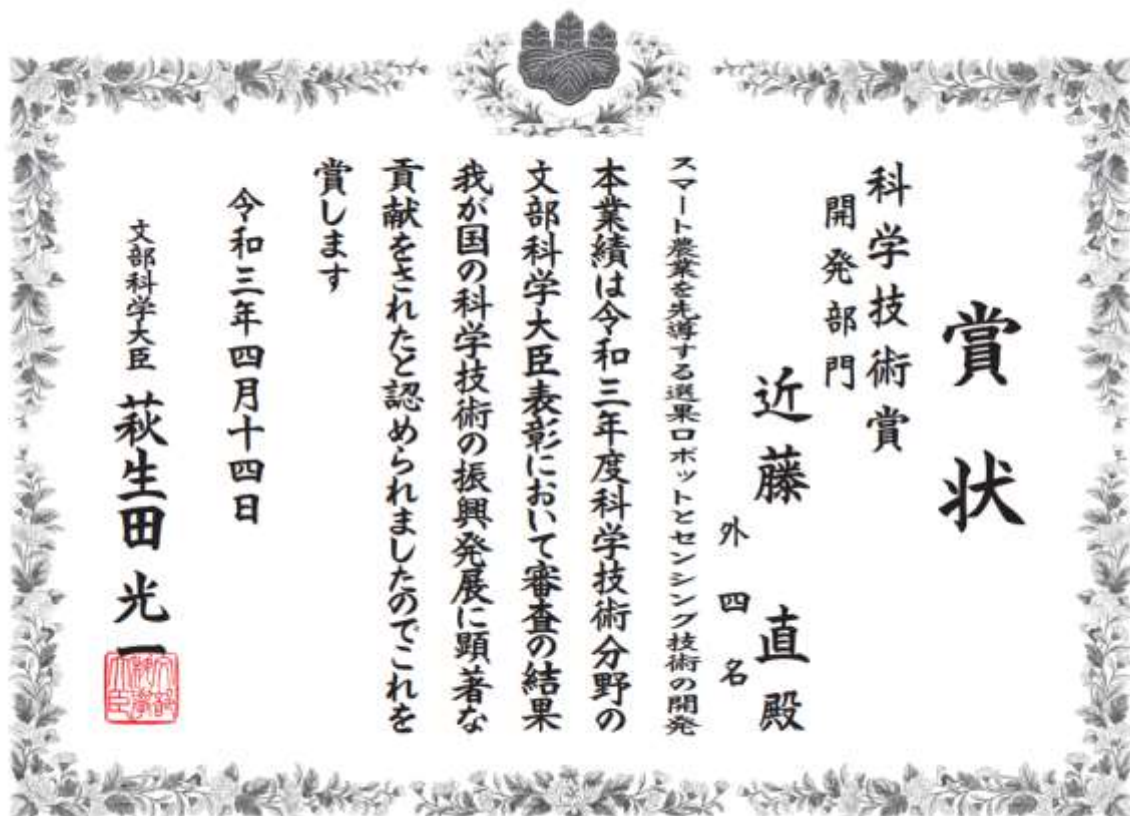 賞状
科学技術賞
開発部門
近藤 直殿
外四名
スマート農業を先導する選果ロボットとセンシング技術の開発
本業績は令和三年度科学技術分野の
文部科学大臣表彰において審査の結果
我が国の科学技術の振興発展に顕著な
貢献をされたと認められましたのでこれを
賞します
令和三年四月十四日
文部科学大臣 萩生田光一